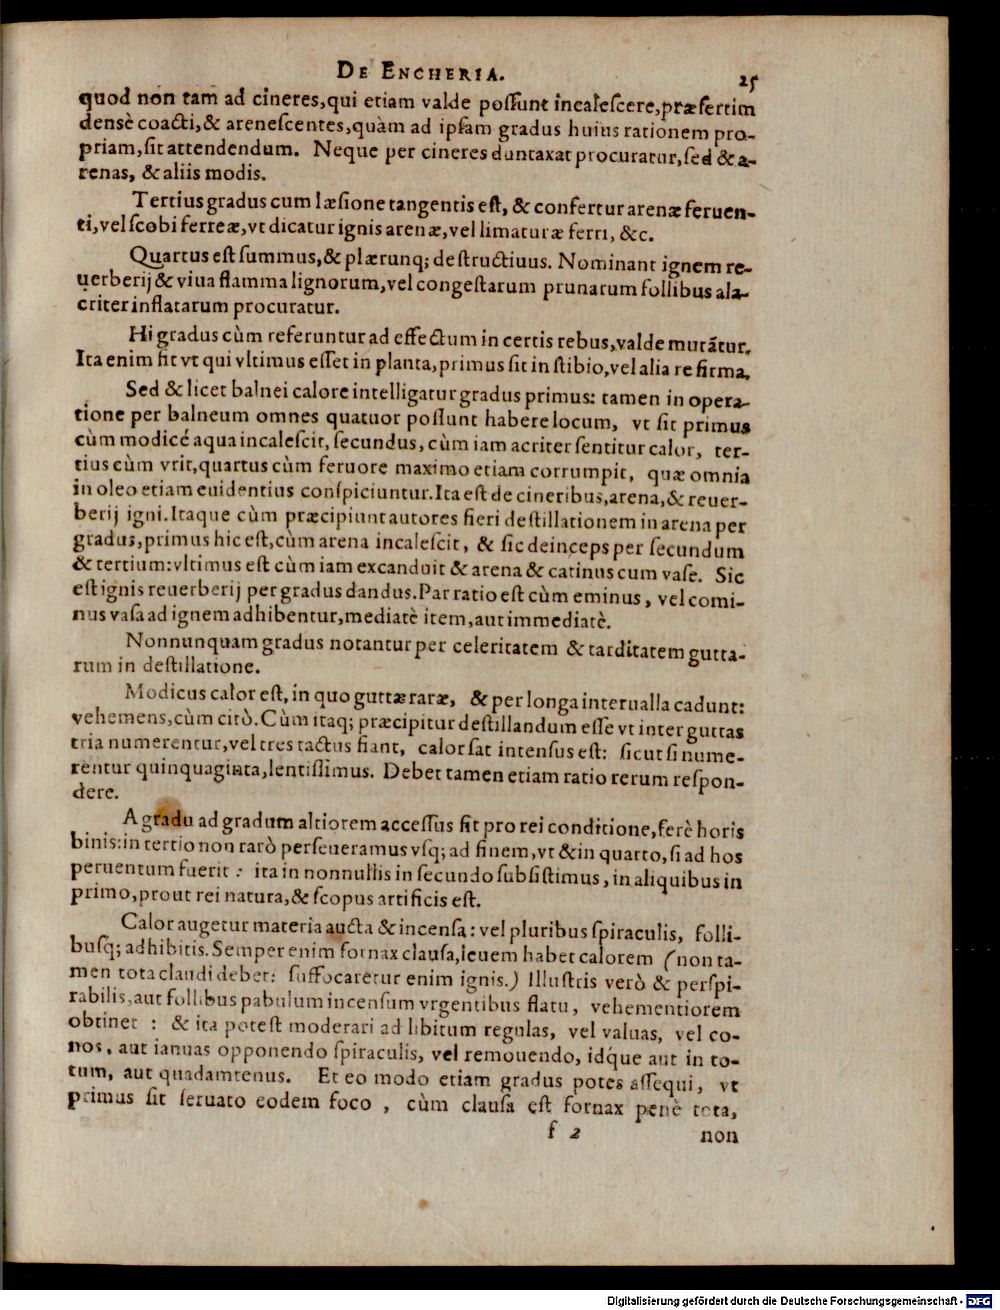 DE ENCHERIA. 25
quod non tam ad cineres, qui etiam valde possunt incalescere, præsertim
densè coacti, & arenescentes, quàm ad ipsam gradus huius rationem pro-
priam, sit attendendum. Neque per cineres duntaxat procuratur, sed & a-
renas, & aliis modis.
Tertius gradus cum læsione tangentis est, & confertur arenæ feruen-
ti, vel scobi ferreæ, vt dicatur ignis arenæ, vel limaturæ ferri, &c.
Quartus est summus, & plærunq; destructiuus. Nominant ignem re-
uerberij & viua flamma lignorum, vel congestarum prunarum follibus ala-
criter inflatarum procuratur.
Hi gradus cùm referuntur ad effectum in certis rebus, valde mutātur.
Ita enim fit vt qui vltimus esset in planta, primus sit in stibio, vel alia re firma.
Sed & licet balnei calore intelligatur gradus primus: tamen in opera-
tione per balneum omnes quatuor possunt habere locum, vt sit primus
cùm modicé aqua incalescit, secundus, cùm iam acriter sentitur calor, ter-
tius cùm vrit, quartus cùm feruore maximo etiam corrumpit, quæ omnia
in oleo etiam euidentius conspiciuntur. Ita est de cineribus, arena, & reuer-
berij igni. Itaque cùm præcipiunt autores fieri destillationem in arena per
gradus, primus hic est, cùm arena incalescit, & sic deinceps per secundum
& tertium: vltimus est cùm iam excanduit & arena & catinus cum vase. Sic
est ignis reuerberij per gradus dandus. Par ratio est cùm eminus, vel comi-
nus vasa ad ignem adhibentur, mediatè item, aut immediatè.
Nonnunquam gradus notantur per celeritatem & tarditatem gutta-
rum in destillatione.
Modicus calor est, in quo guttæ raræ, & per longa interualla cadunt:
vehemens, cùm citò. Cùm itaq; præcipitur destillandum esse vt inter guttas
tria numerentur, vel tres tactus fiant, calor sat intensus est: sicut si nume-
rentur quinquaginta, lentissimus. Debet tamen etiam ratio rerum respon-
dere.
A gradu ad gradum altiorem accessus fit pro rei conditione, ferè horis
binis: in tertio non rarò perseueramus vsq; ad finem, vt & in quarto, si ad hos
peruentum fuerit: ita in nonnullis in secundo subsistimus, in aliquibus in
primo, prout rei natura, & scopus artificis est.
Calor augetur materia aucta & incensa: vel pluribus spiraculis, folli-
busq; adhibitis. Semper enim fornax clausa, leuem habet calorem (non ta-
men tota claudi debet: suffocaretur enim ignis.) Illustris verò & perspi-
rabilis, aut follibus pabulum incensum vrgentibus flatu, vehementiorem
obtinet : & ita potest moderari ad libitum regulas, vel valuas, vel co-
nos, aut ianuas opponendo spiraculis, vel remouendo, idque aut in to-
tum, aut quadamtenus. Et eo modo etiam gradus potes assequi, vt
primus sit seruato eodem foco , cùm clausa est fornax penè tota,
f 2 non
Digitalisierung gefördert durch die Deutsche Forschungsgemeinschaft - DFG